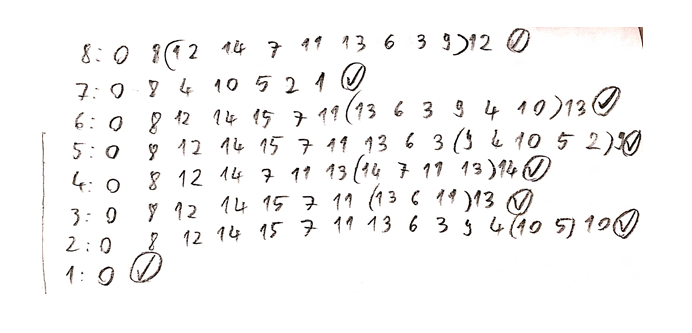 8: 0 8 (12 14 7 11 13 6 3 9) 12 ✓
7: 0 8 4 10 5 2 1 ✓
6: 0 8 12 14 15 7 11 (13 6 3 9 4 10) 13 ✓
5: 0 8 12 14 15 7 11 13 6 3 (9 4 10 5 2) 9 ✓
4: 0 8 12 14 7 11 13 (14 7 11 13) 14 ✓
3: 0 8 12 14 15 7 11 (13 6 11) 13 ✓
2: 0 8 12 14 15 7 11 13 6 3 9 4 (10 5) 10 ✓
1: 0 ✓